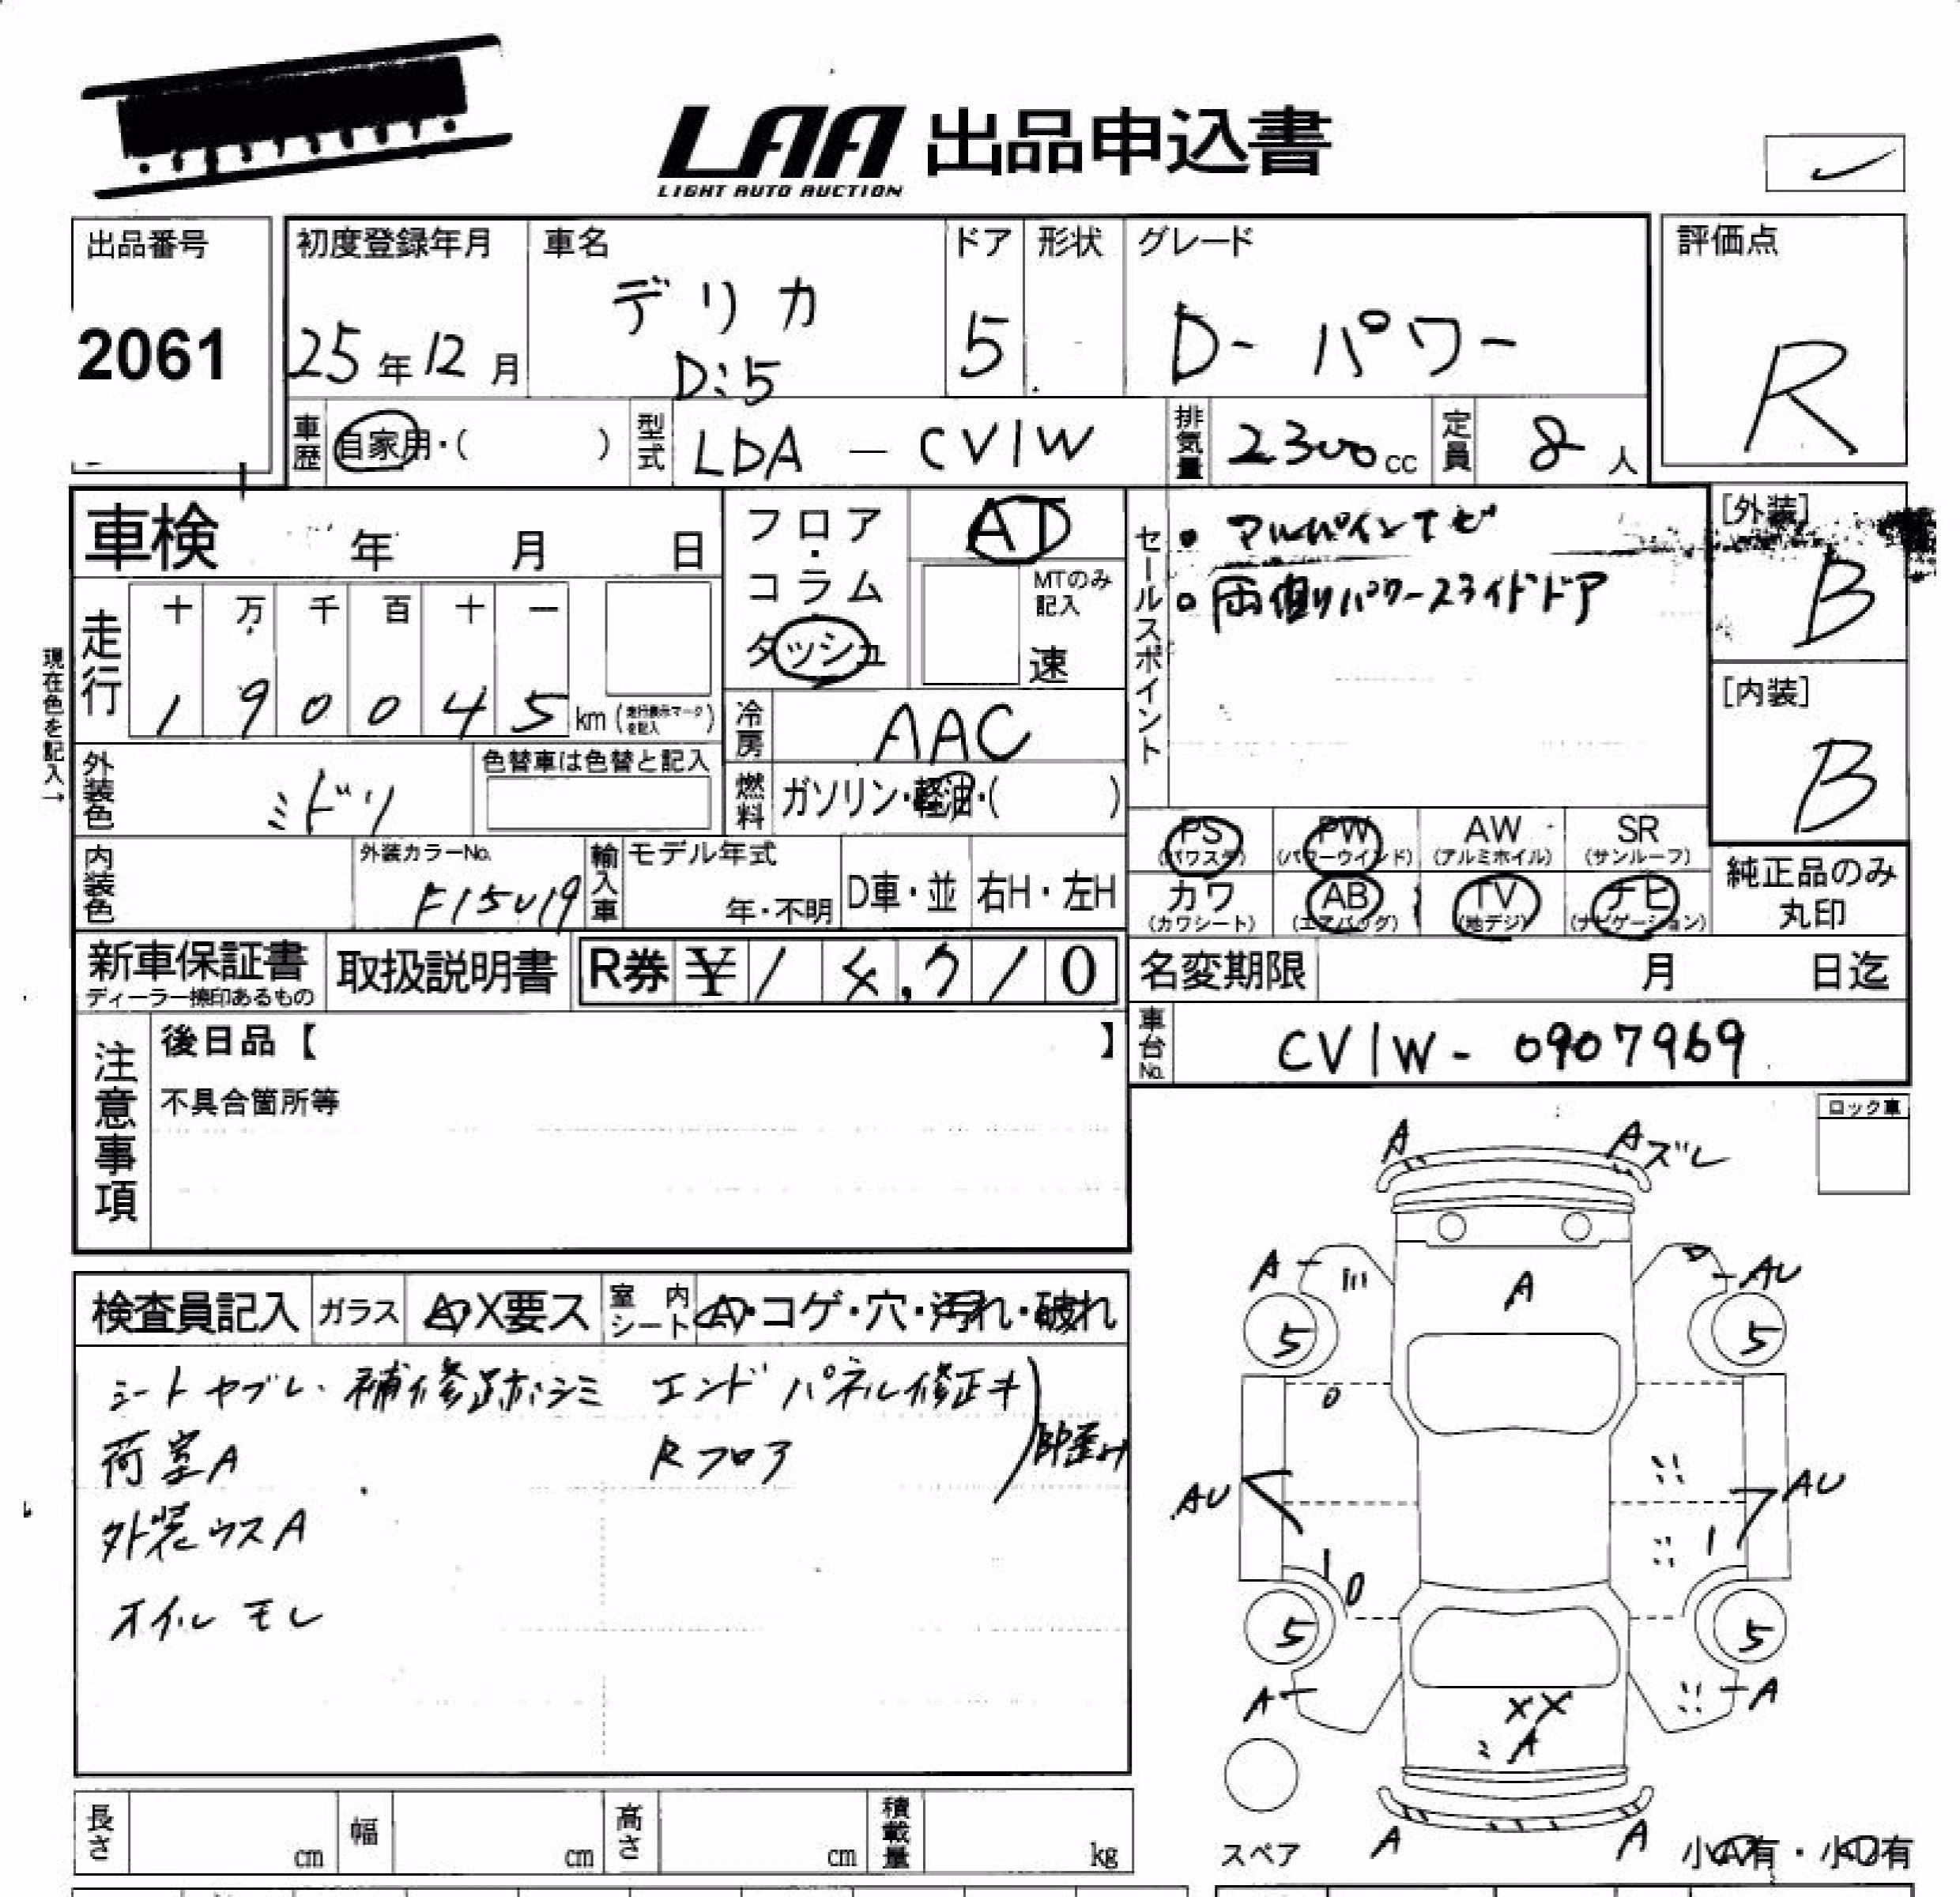 LAA 出品申込書
LIGHT AUTO AUCTION
出品番号
2061
初度登録年月
25年12月
車名
デリカ
D:5
ドア
5
形状
グレード
D-パワー
評価点
R
車歴 自家用・( )
型式 LDA - CV1W
排気量 2300cc
定員 8人
車検 年 月 日
現在色を記入→
走行
十 万 千 百 十 一
1 9 0 0 4 5 km (走行表示マークを記入)
フロア・コラム
ダッシュ
AT
MTのみ記入
速
冷房 AAC
燃料 ガソリン・軽油・( )
セールスポイント
・アルパインナビ
・両側パワースライドドア
[外装]
B
[内装]
B
外装色 ミドリ
色替車は色替と記入
内装色
外装カラーNo.
輸入車
モデル年式
年・不明
D車・並
右H・左H
PS (パワステ)
PW (パワーウインド)
AW (アルミホイル)
SR (サンルーフ)
カワ (カワシート)
AB (エアバッグ)
TV (地デジ)
ナビ (ナビゲーション)
純正品のみ
丸印
新車保証書
ディーラー捺印あるもの
取扱説明書
R券 ¥
名変期限 月 日迄
車台No. CV1W- 0907969
注意事項
後日品【 】
不具合箇所等
ロック車
検査員記入
ガラス A・X要ス
室内シート A・コゲ・穴・汚れ・破れ
シートヤブレ・補修跡・シミ
荷室A
外装ウスA
オイルモレ
エンドパネル修正キ
Rフロア
A
Aズレ
A
A
AU
5
5
AU
AU
5
5
A
XX
A
A
A
A
スペア
長さ cm
幅 cm
高さ cm
積載量 kg